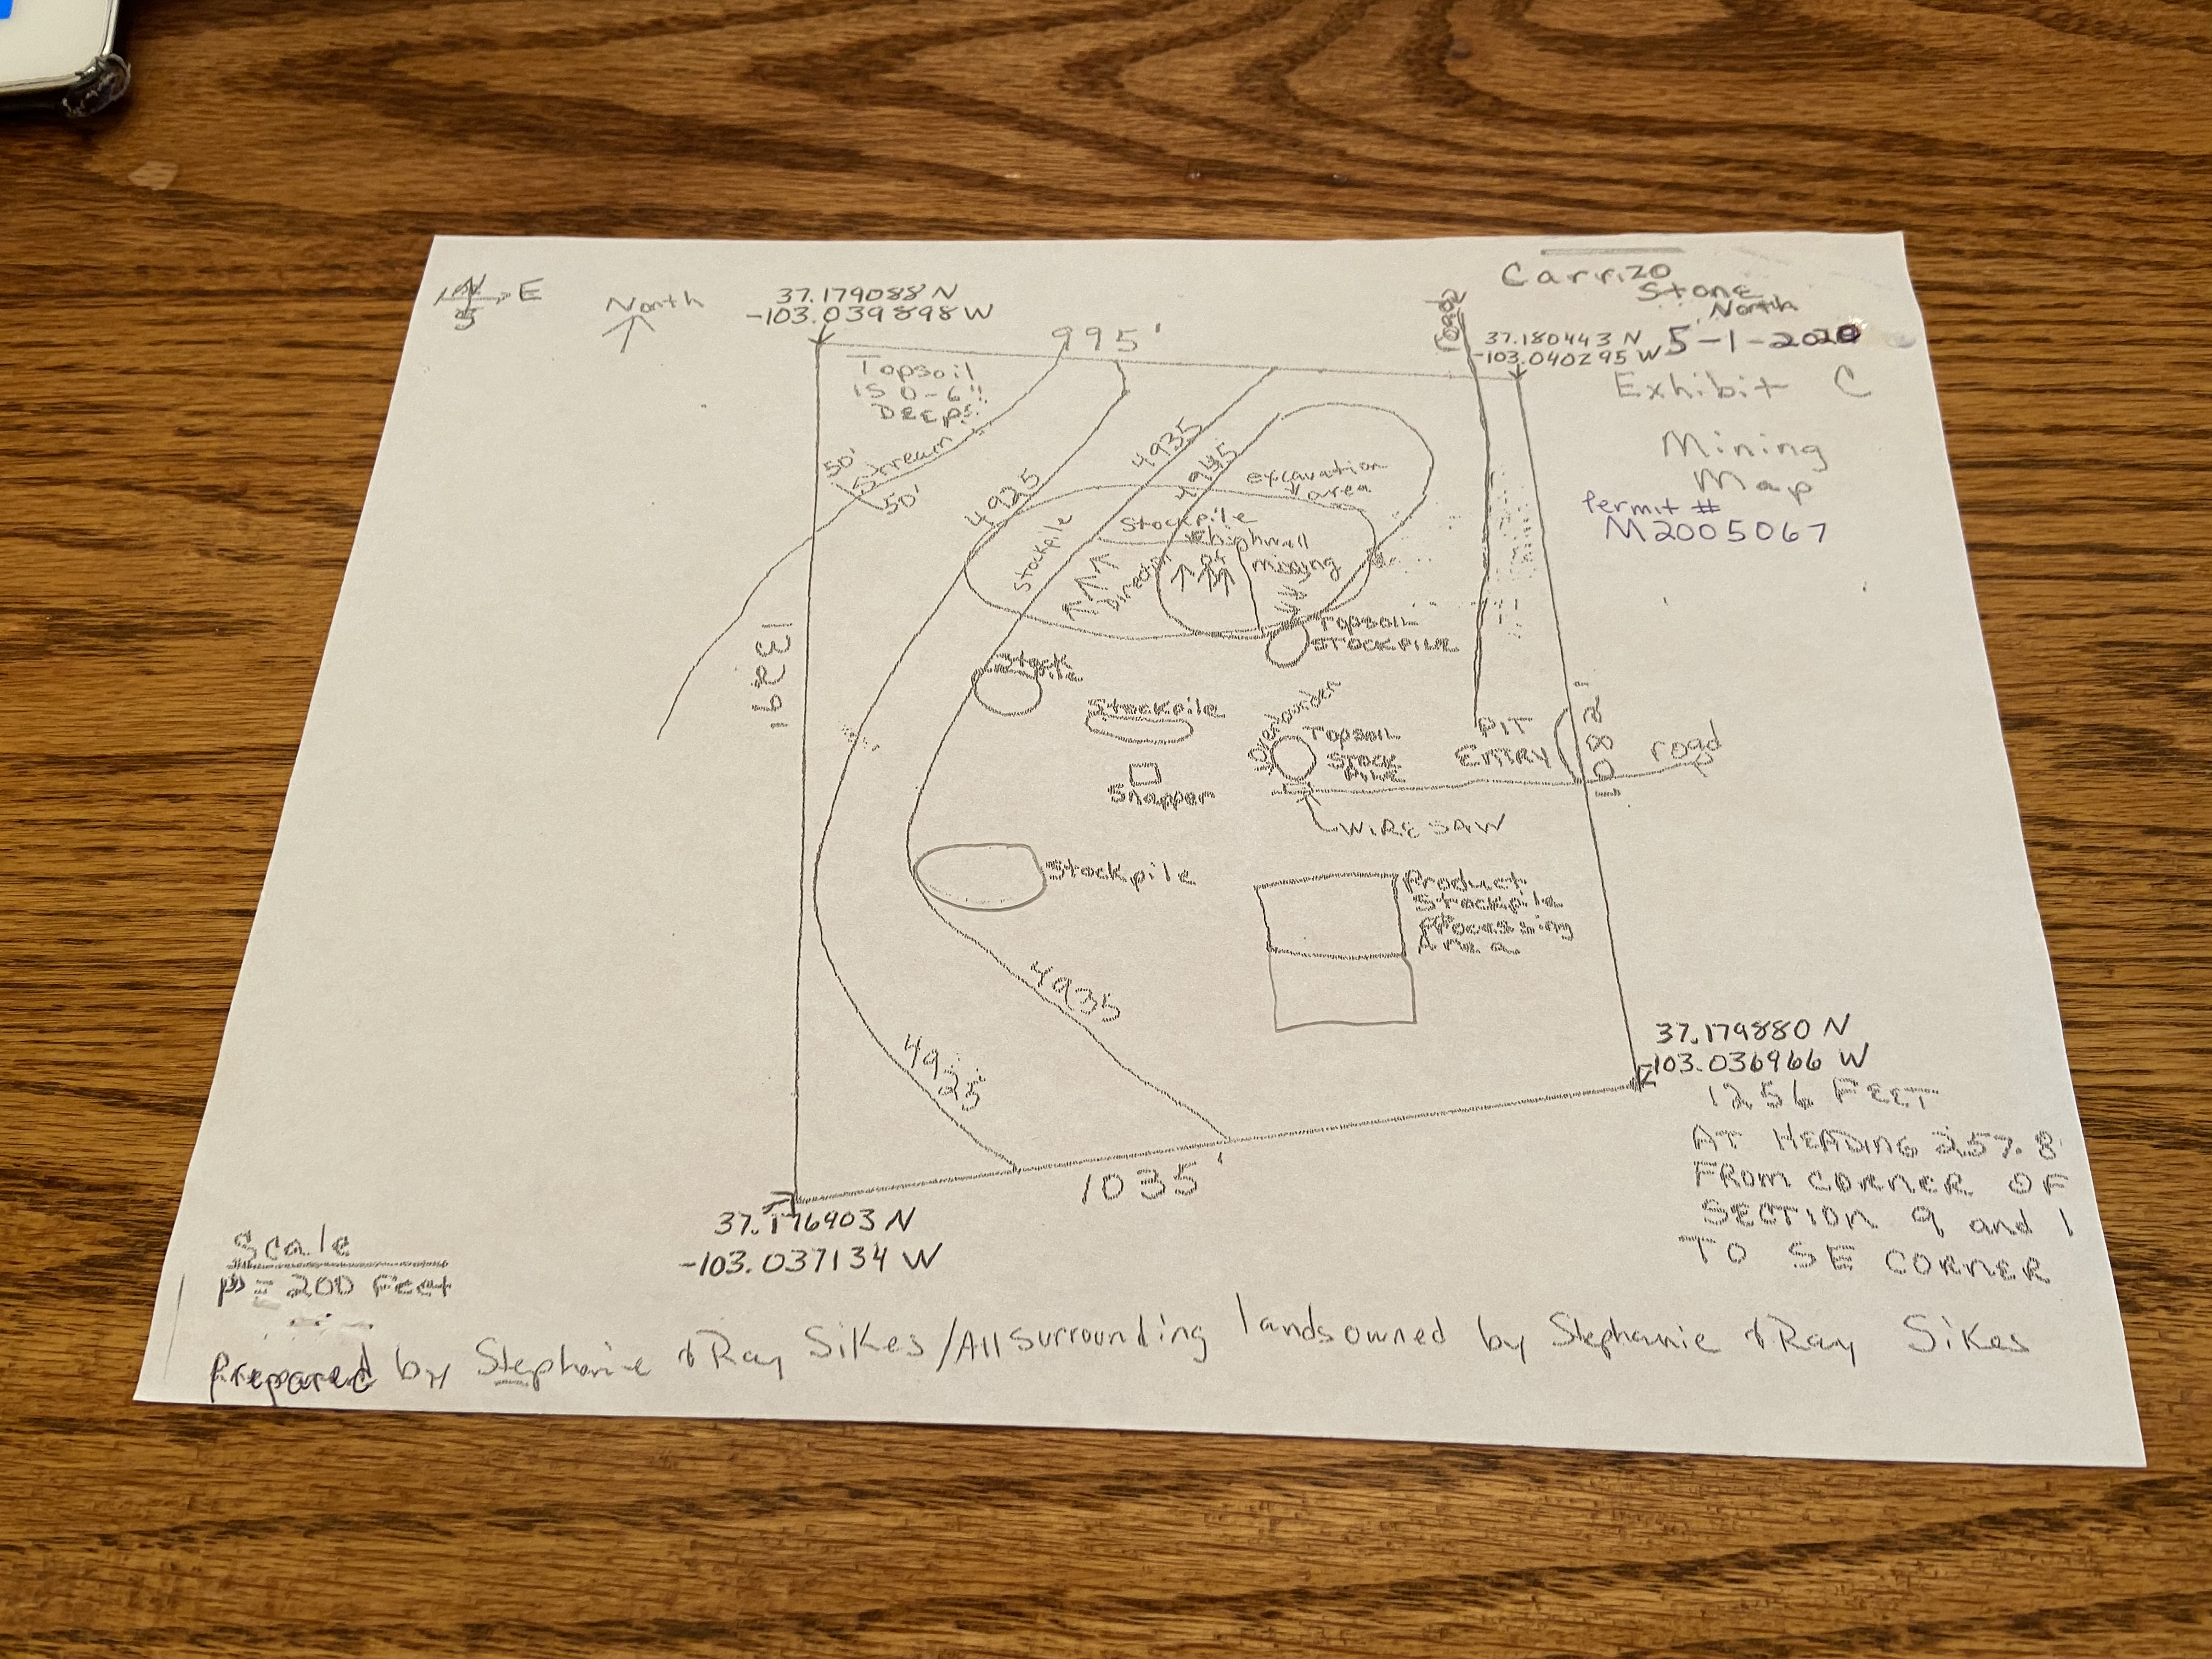 N
E
S
North
37.179088 N
-103.039898 W
995'
road
Carrizo
Stone
North
37.180443 N
-103.040295 W
5-1-2020
Exhibit C
Mining
Map
Permit #
M2005067
Topsoil
IS 0-6"
DEEP
50'
Stream
50'
4925
4935
4945
excavation
area
Stockpile
Stockpile
highwall
Direction
of
mining
Topsoil
STOCKPILE
1329'
Stock
pile
Stockpile
Overburden
Topsoil
STOCK
PILE
PIT
ENTRY
1082'
road
Snapper
WIRE SAW
Stockpile
Product
Stockpile
Processing
Area
4935
4925
37.179880 N
-103.036966 W
1256 FEET
AT HEADING 257.8
FROM CORNER OF
SECTION 9 and 1
TO SE CORNER
1035'
37.176903 N
-103.037134 W
Scale
1" = 200 Feet
Prepared by Stephanie & Ray Sikes/All surrounding lands owned by Stephanie & Ray Sikes